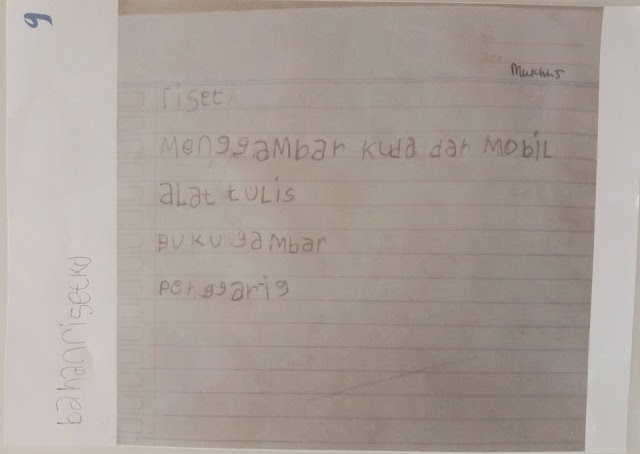 Mukhlis
riset
menggambar kuda dan mobil
alat tulis
buku gambar
penggaris
bahan risetku
9